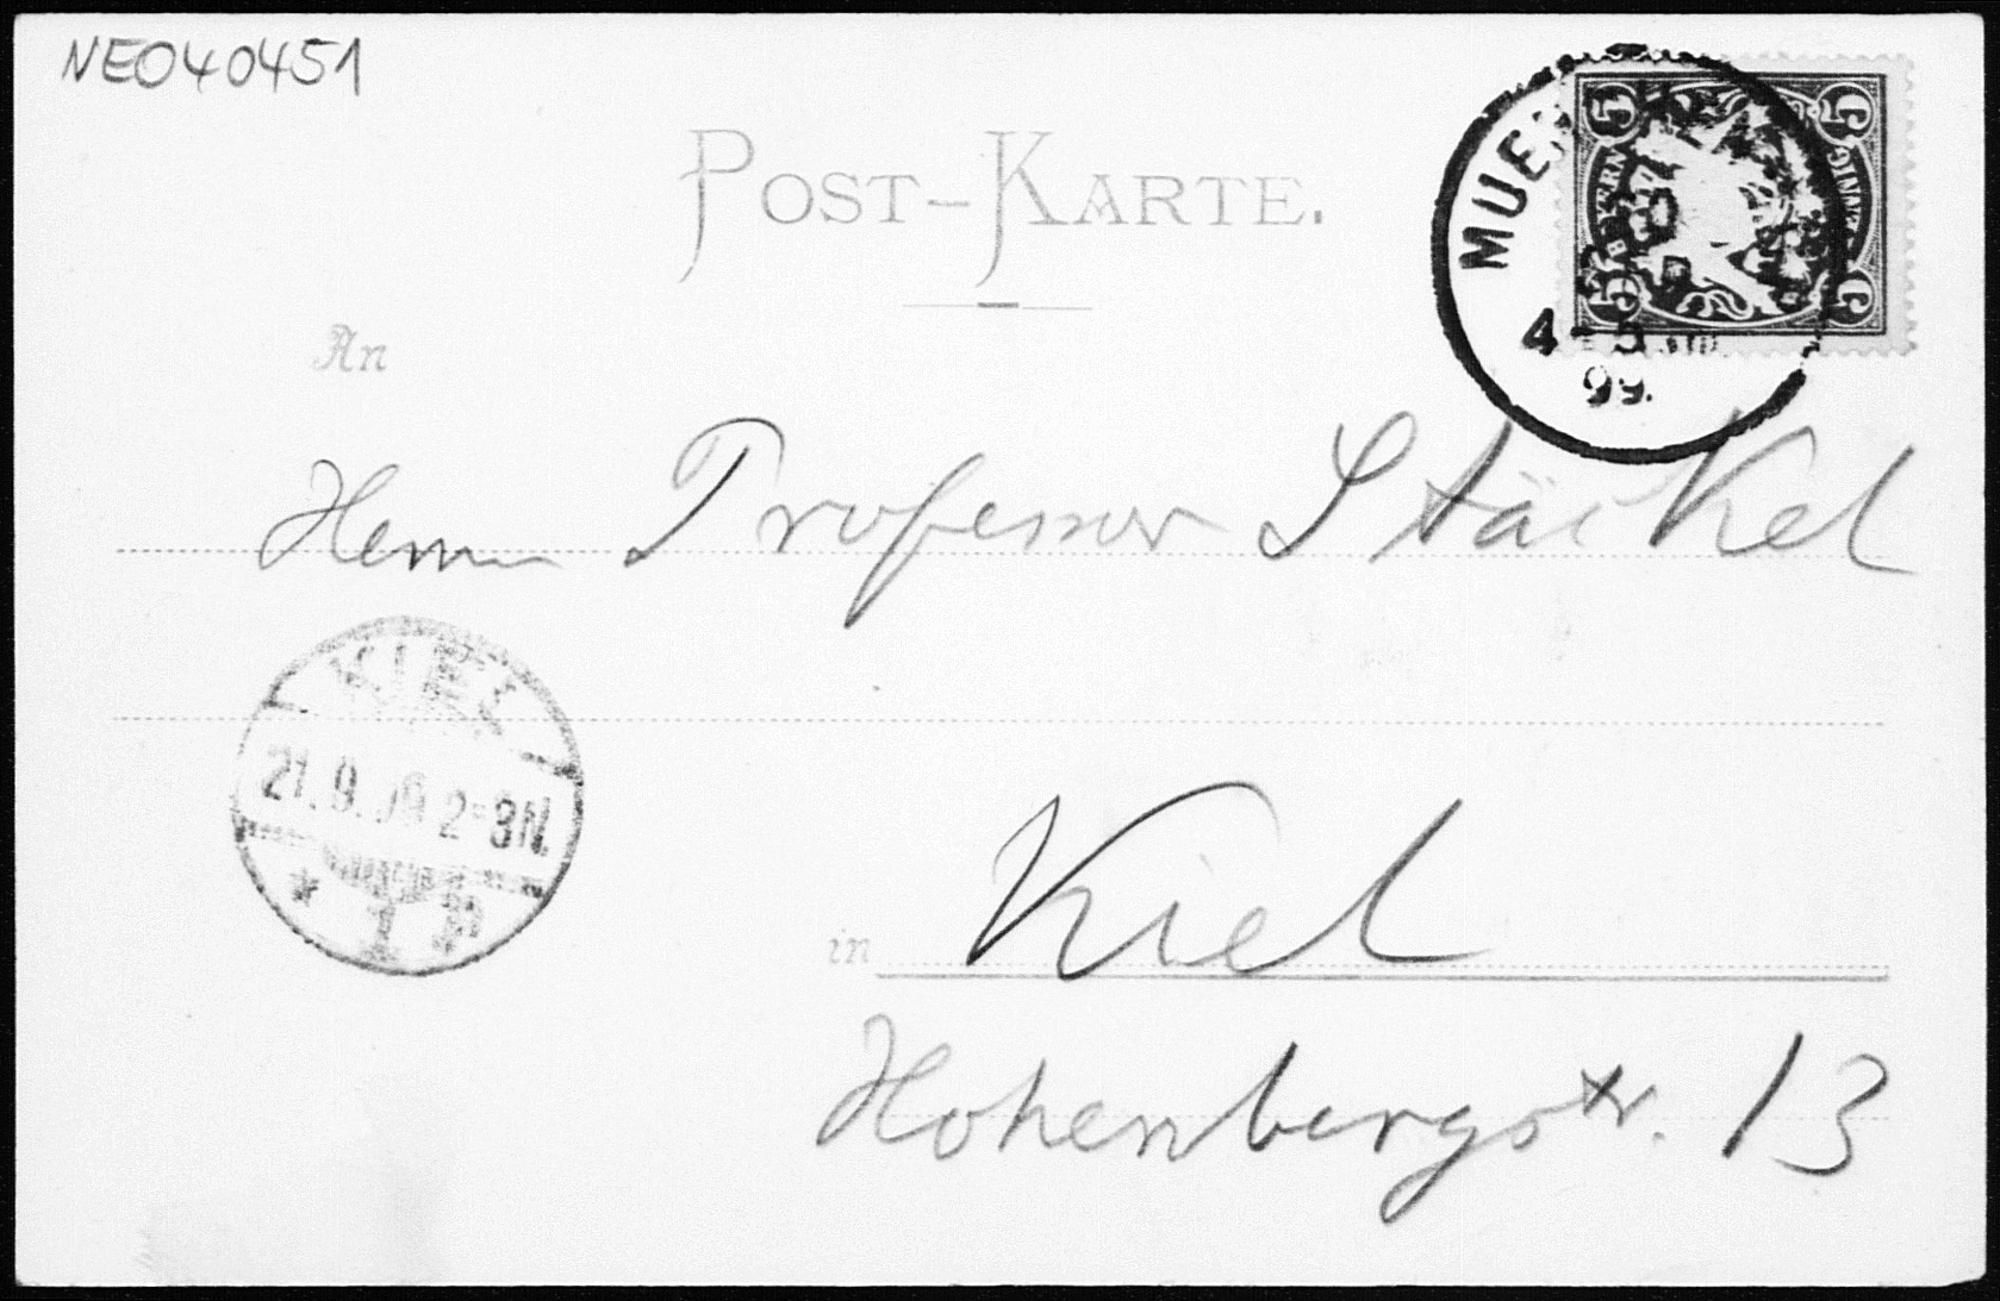 NEO40451
POST-KARTE.
5 5
BAYERN
4-5
99.
An
Herrn Professor Stäckel
KIEL
21.9.99 2-3N.
* 1
in Kiel
Hohenbergstr. 13